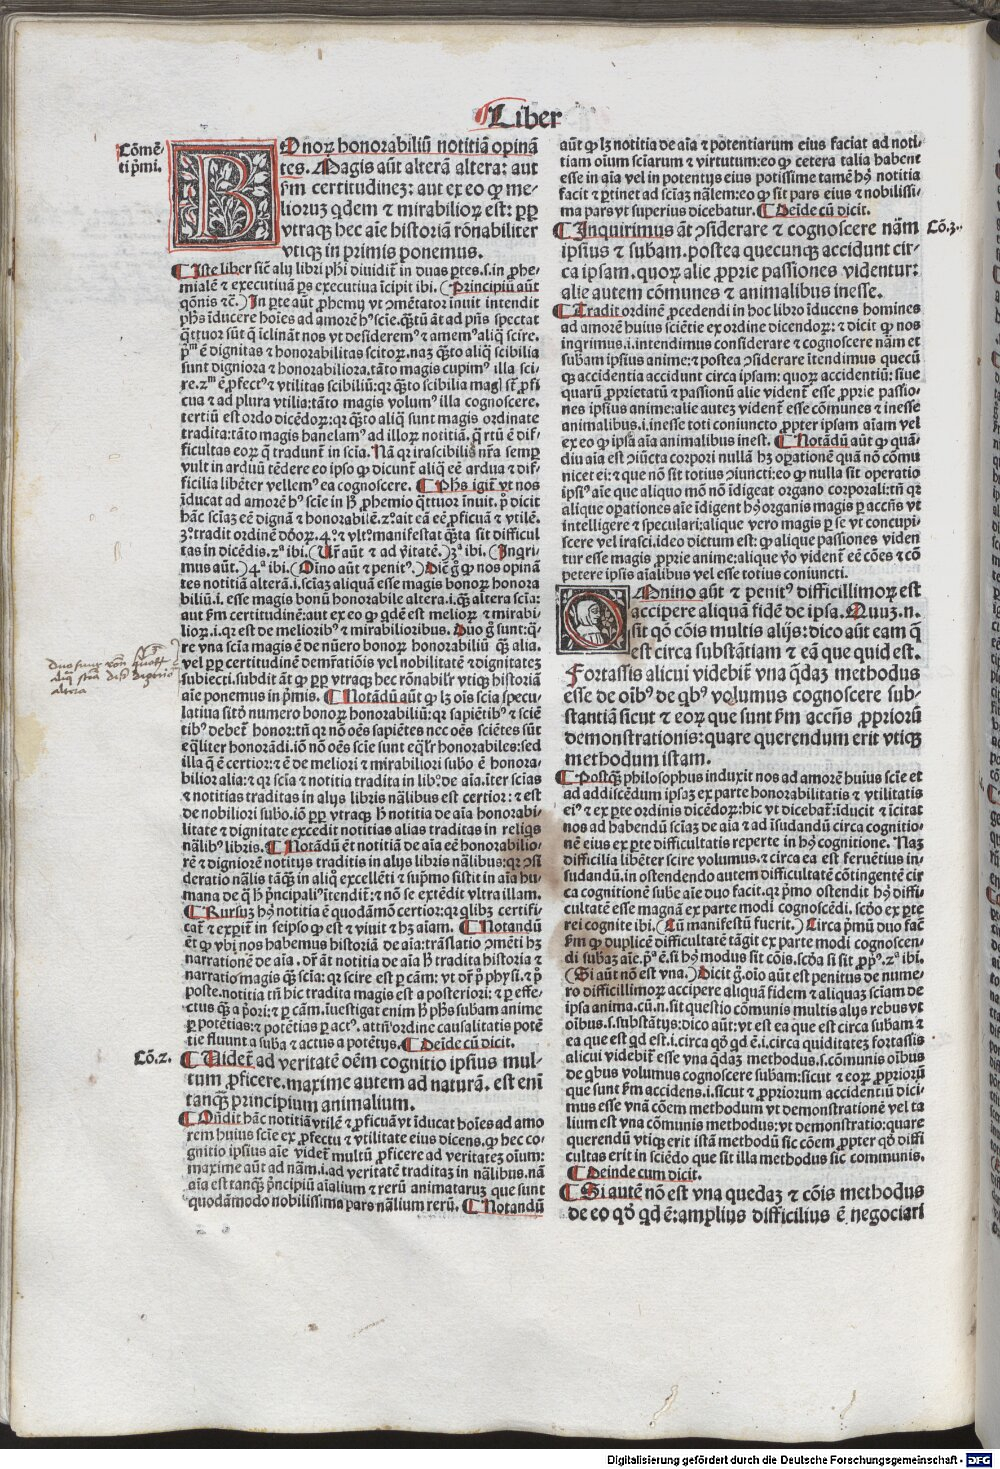 Liber
Cōmē-
ti p̄mi.
BOnoꝝ honorabiliū notitiā opinā
tes. Magis aūt alterā altera: aut
ẜm certitudinez: aut ex eo ꝙ me-
lioruz q̄dem ⁊ mirabilioꝝ est: ꝓpꝑ
vtraqꝫ hec aīe historiā rōnabiliter
vtiqꝫ in primis ponemus.
¶ Iste liber sicut alij libri phī diuidit̄ in duas ꝑtes.s.in ꝓhe-
mialē ⁊ executiuā ꝑs executiua īcipit ibi. (Principiū aūt
qōnis ⁊c̄.) In ꝑte aūt ꝓhemij vt ɔmētator inuit intendit
phs īducere hoīes ad amorē hꝰ scīe. q̄ptū āt ad pn̄s spectat
q̄ttuor sūt q̄ iclināt nos vt desideremꝰ ⁊ amemꝰ aliq̄ scire.
p̄m ē dignitas ⁊ honorabilitas scitoꝝ. naꝫ q̄pto aliq̄ scibilia
sunt digniora ⁊ honorabiliora. tāto magis cupimꝰ illa sci-
re. 2m ē ꝓfectꝰ ⁊ vtilitas scibiliū: qꝛ q̄pto scibilia magꝭ sūt ꝓfi
cua ⁊ ad plura vtilia: tāto magis volumꝰ illa cognoscere.
tertiū est ordo dicēdoꝝ: qꝛ q̄pto aliq̄ sunt magis ordinate
tradita: tāto magis hanelamꝰ ad illoꝝ notitiā. q̄rtū ē dif-
ficultas eoꝝ q̄ tradunt̄ in scīa. Nā qꝛ irascibilis nr̄a semꝑ
vult in arduū tēdere eo ipso ꝙ dicunt̄ aliq̄ eē ardua ⁊ dif-
ficilia libēter vellemꝰ ea cognoscere. ¶ Phs igit̄ vt nos
īducat ad amorē hꝰ scīe in ħ ꝓhemio q̄ttuor inuit. p̄ dicit
hāc scīaꝫ eē dignā ⁊ honorabilē. 2ͦ ait eā eē ꝓficuā ⁊ vtilē.
3ͦ tradit ordinē dōoꝝ. 4ͦ ⁊ vltͦ manifestat q̄pta sit difficul
tas in dicēdis. 2ª ibi. (Ur̄ aūt ⁊ ad v̄itatē.) 3ª ibi. (Inqri-
mus aūt.) 4ª ibi. (Oīno aūt ⁊ penitꝰ.) Dicē g̊ ꝙ nos opinā
tes notitiā alterā.i.scīaꝫ aliquā esse magis bonoꝝ honora
biliū.i. esse magis bonū honorabile altera.i.q̄ꝫ altera scīa:
aut ẜm certitudinē: aut ex eo ꝙ qdē est melioꝝ ⁊ mirabi-
lioꝝ.i.qꝛ est de melioribꝰ ⁊ mirabilioribus. Duo g̊ sunt: q̄-
re vna scīa magis ē de nūero bonoꝝ honorabiliū q̄ꝫ alia.
vel ꝓpꝑ certitudinē demr̄atiōis vel nobilitatē ⁊ dignitateꝫ
subiecti. subdit āt ꝙ ꝓpꝑ vtraqꝫ hec rōnabilr̄ vtiqꝫ historiā
aīe ponemus in p̄mis. ¶ Notādū aūt ꝙ lꝫ oīs scīa specu
latiua sit de numero bonoꝝ honorabiliū: qꝛ sapiētibꝰ ⁊ sciē
tibꝰ debet̄ honor: tn̄ qꝛ nō oēs sapiētes nec oēs sciētes sūt
eq̄liter honorādi. iō nō oēs scīe sunt eq̄lr̄ honorabiles: sed
illa q̄ ē certior: ⁊ ē de meliori ⁊ mirabiliori subō ē honora-
bilior alia: ⁊ qꝛ scīa ⁊ notitia tradita in libͦ. de aīa. īter scīas
⁊ notitias traditas in alijs libris nālibus est certior: ⁊ est
de nobiliori subo. iō ꝓpꝑ vtraqꝫ ħ notitia de aīa honorabi-
litate ⁊ dignitate excedit notitias alias traditas in reliq̄s
nālibꝰ libris. ¶ Notādū ēt notitiā de aīa eē honorabilio-
rē ⁊ digniorē notitijs traditis in alijs libris nālibus: qꝛ ɔsi
deratio nālis tāq̄ꝫ in aliq̊ excellēti ⁊ sup̄mo sistit in aīa hu
mana de q̄ ħ p̄ncipaliꝰ itendit̄: ⁊ nō se extēdit vltra illam.
¶ Rursuꝫ hꝰ notitia ē quodāmō certior: qꝛ qlibꝫ certifi-
cat̄ ⁊ exꝑit̄ in seipso ꝙ est ⁊ viuit ⁊ hꝫ aīam. ¶ Notandū
ēt ꝙ vbi nos habemus historiā de aīa: trāslatio ɔmēti hꝫ
narrationē de aīa. dr̄ āt notitia de aīa ħ tradita historia ⁊
narratio magis q̄ꝫ scīa: qꝛ scire est ꝑ cām: vt dr̄ p̄ physi. ⁊ p̄
poste. notitia tn̄ hic tradita magis est a posteriori: ⁊ ꝑ effe-
ctus q̄ꝫ a p̄ori: ⁊ ꝑ cām. iuestigat enim ħ phs subam anime
ꝑ potētias: ⁊ potētias ꝑ actꝰ. attn̄ ordine causalitatis potē
tie fluunt a suba ⁊ actus a potētijs. ¶ Deīde cū dicit.
Cō.2. ¶ Videt̄ ad veritatē oēm cognitio ipsius mul-
tum ꝓficere. maxime autem ad naturā. est eni
tanq̄ꝫ principium animalium.
¶ Ondit hāc notitiā vtilē ⁊ ꝓficuā vt īducat hoīes ad amo
rem huius scīe ex ꝓfectu ⁊ vtilitate eius dicens. ꝙ hec co-
gnitio ipsius aīe videt̄ multū ꝓficere ad veritateꝫ oīum:
maxime aūt ad nām.i.ad veritatē traditaꝫ in nālibus. nā
aīa est tanq̄ꝫ p̄ncipiū aīalium ⁊ rerū animataruꝫ que sunt
quodāmodo nobilissima pars nālium rerū. ¶ Notandū
aūt ꝙ lꝫ notitia de aīa ⁊ potentiarum eius faciat ad noti-
tiam oīum sciarum ⁊ virtutum: eo ꝙ cetera talia habent
esse in aīa vel in potentijs eius potissime tamē hꝰ notitia
facit ⁊ ꝑtinet ad scīaꝫ nālem: eo ꝙ sit pars eius ⁊ nobilissi-
ma pars vt superius dicebatur. ¶ Deīde cū dicit.
¶ Inquirimus āt ɔsiderare ⁊ cognoscere nām Cō.3.
ipsius ⁊ subam. postea quecunqꝫ accidunt cir-
ca ipsam. quoꝝ alie ꝓprie passiones videntur:
alie autem cōmunes ⁊ animalibus inesse.
¶ Tradit ordinē ꝓcedendi in hoc libro īducens homines
ad amorē huius sciētie ex ordine dicendoꝝ: ⁊ dicit ꝙ nos
inqrimus.i.intendimus considerare ⁊ cognoscere nām et
subam ipsius anime: ⁊ postea ɔsiderare ītendimus quecū
qꝫ accidentia accidunt circa ipsam: quoꝝ accidentiū: siue
quarū ꝓprietatū ⁊ passionū alie vident̄ esse ꝓprie passio-
nes ipsius anime: alie auteꝫ vident̄ esse cōmunes ⁊ inesse
animalibus.i.inesse toti coniuncto ꝓpter ipsam aīam vel
ex eo ꝙ ipsā aīa animalibus inest. ¶ Notādū aūt ꝙ quā-
diu aīa est ɔiūcta corpori nullā hꝫ oꝑationē quā nō cōmu
nicet ei: ⁊ que nō sit totius ɔiuncti: eo ꝙ nulla sit operatio
ipsiꝰ aīe que aliquo mō nō īdigeat organo corporali: tn̄ qꝛ
alique oꝑationes aīe īdigent hꝰ organis magis ꝑ accn̄s vt
intelligere ⁊ speculari: alique vero magis ꝑ se vt concupi-
scere vel irasci. ideo dictum est: ꝙ alique passiones viden
tur esse magis ꝓprie anime: alique v̄o vident̄ eē cōes ⁊ cō
petere ipsis aīalibus vel esse totius coniuncti.
OMnino aūt ⁊ penitꝰ difficillimoꝝ est
accipere aliquā fidē de ipsa. Quuꝫ.n.
sūt qō cōis multis alijs: dico aūt eam q̄
est circa substātiam ⁊ eā que quid est.
Fortassis alicui videbit̄ vna q̄daꝫ methodus
esse de oībꝰ de qbꝰ volumus cognoscere sub-
stantiā sicut ⁊ eoꝝ que sunt ẜm accn̄s ꝓpriorū
demonstrationis: quare querendum erit vtiqꝫ
methodum istam.
¶ Postq̄ꝫ philosophus induxit nos ad amorē huius scīe et
ad addiscēdum ipsaꝫ ex parte honorabilitatis ⁊ vtilitatis
eiꝰ ⁊ ex ꝑte ordinis dicēdoꝝ: hic vt dicebat̄: īducit ⁊ īcitat
nos ad habendū scīaꝫ de aīa ⁊ ad īsudandū circa cognitio-
nē eius ex ꝑte difficultatis reperte in hꝰ cognitione. Naꝫ
difficilia libēter scire volumus. ⁊ circa ea est feruētius in-
sudandū. in ostendendo autem difficultatē cōtingentē cir
ca cognitionē sube aīe duo facit. qꝛ p̄mo ostendit hꝰ diffi-
cultatē esse magnā ex parte modi cognoscēdi. scdo ex ꝑte
rei cognite ibi. (Cū manifestū fuerit.) Circa p̄mū duo fac̄
ẜm ꝙ duplicē difficultatē tāgit ex parte modi cognoscen-
di subaꝫ aīe. p̄ª ē. si hꝰ modus sit cōis. scda si sit ꝓpꝰ. 2ª ibi.
(Si aūt nō est vna.) Dicit g̊. oīo aūt est penitus de nume-
ro difficillimoꝝ accipere aliquā fidem ⁊ aliquaꝫ scīam de
ipsa anima. cū.n. sit questio cōmunis multis alijs rebus vt
oībus.s.substātijs: dico aūt: vt est ea que est circa subam ⁊
ea que est qd est.i.circa qō qd ē.i.circa quiditateꝫ fortassis
alicui videbit̄ esse vna q̄daꝫ methodus.s.cōmunis oībus
de qbus volumus cognoscere subam: sicut ⁊ eoꝝ ꝓpriorū
que sunt ẜm accidens.i.sicut ⁊ ꝓpriorum accidentiū dici-
mus esse vnā cōem methodum vt demonstrationē vel ta
lium est vna cōmunis methodus: vt demonstratio: quare
querendū vtiqꝫ erit istā methodū sic cōem ꝓpter qō diffi
cultas erit in sciēdo que sit illa methodus sic communis.
¶ Deinde cum dicit.
¶ Si autē nō est vna quedaꝫ ⁊ cōis methodus
de eo qō qd ē: amplius difficilius ē negociari
Digitalisierung gefördert durch die Deutsche Forschungsgemeinschaft - DFG